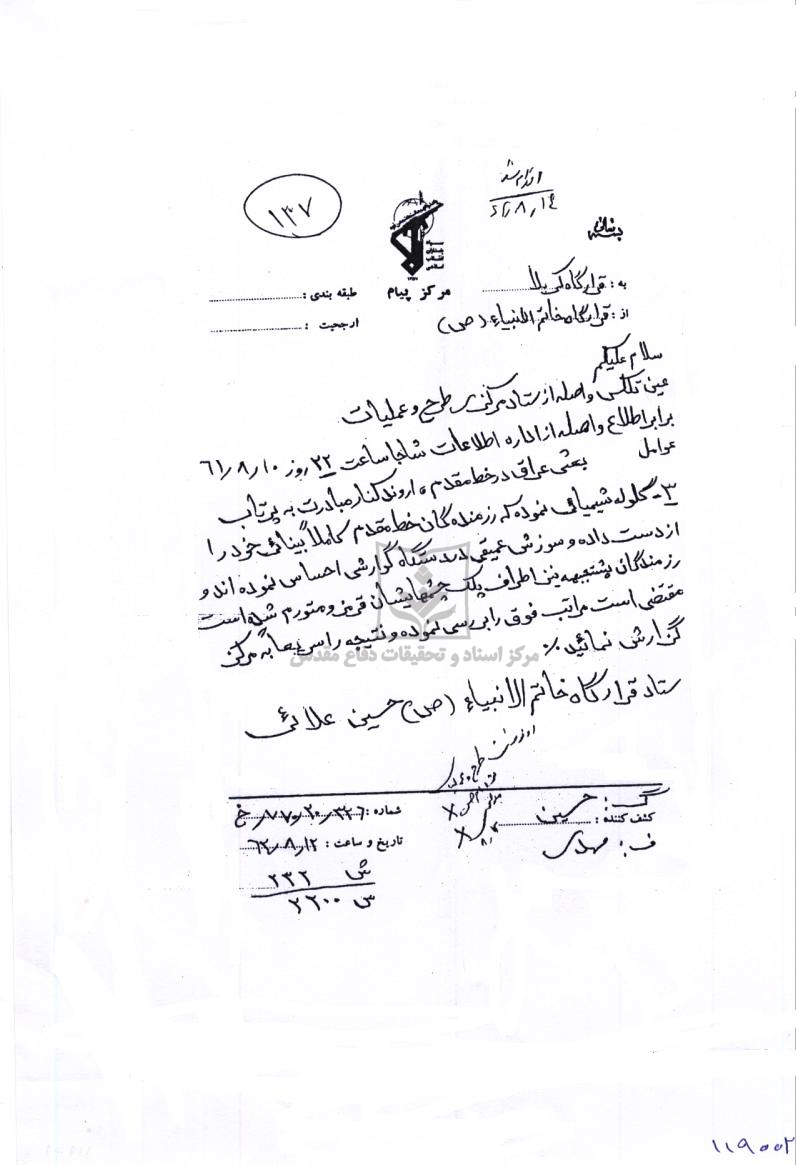 اقدام شد
۶۱/۸/۱۴
۱۳۷
بسمه تعالی
مرکز پیام
به : قرارگاه کربلا
طبقه بندی :
از : قرارگاه خاتم الانبیاء (ص)
ارجحیت :
سلام علیکم
عین تلکس واصله از ستاد مرکزی طرح و عملیات
برابر اطلاع واصله از اداره اطلاعات شاجا ساعت ۲۲ روز ۶۱/۸/۱۰
عوامل بعثی عراق در خط مقدم اروند کنار مبادرت به پرتاب
۳- گلوله شیمیائی نموده که رزمنده گان خط مقدم کاملا بینائی خود را
از دست داده و سوزش عمیقی در دستگاه گوارشی احساس نموده اند و
رزمندگان پشت جبهه نیز اطراف پلک چشمهایشان قرمز و متورم شده است
مقتضی است مراتب فوق را بررسی نموده و نتیجه را سریعا به مرکز
گزارش نمائید ٪
مرکز اسناد و تحقیقات دفاع مقدس
ستاد قرارگاه خاتم الانبیاء (ص) حسین علائی
گ : حسین
کشف کننده :
ف : مهدی
شماره : ۳۲۶/۲۰/۷۷/خ
تاریخ و ساعت : ۶۲/۸/۱۲
ش ۲۳۲
س ۲۲۰۰
۱۱۹۰۰۲